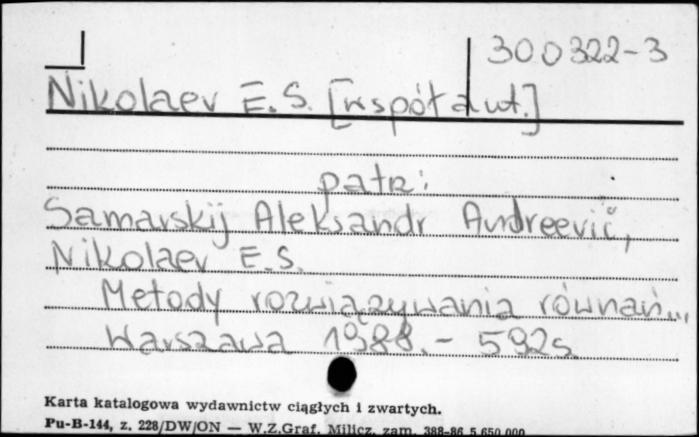 300322-3
Nikolaev E.S. [współaut.]
patrz:
Samarskij Aleksandr Andreevič,
Nikolaev E.S.
Metody rozwiązywania równań...,
Warszawa 1988.- 592s.
Karta katalogowa wydawnictw ciągłych i zwartych.
Pu-B-144, z. 228/DW/ON — W.Z.Graf. Milicz, zam. 388-86 5.650.000